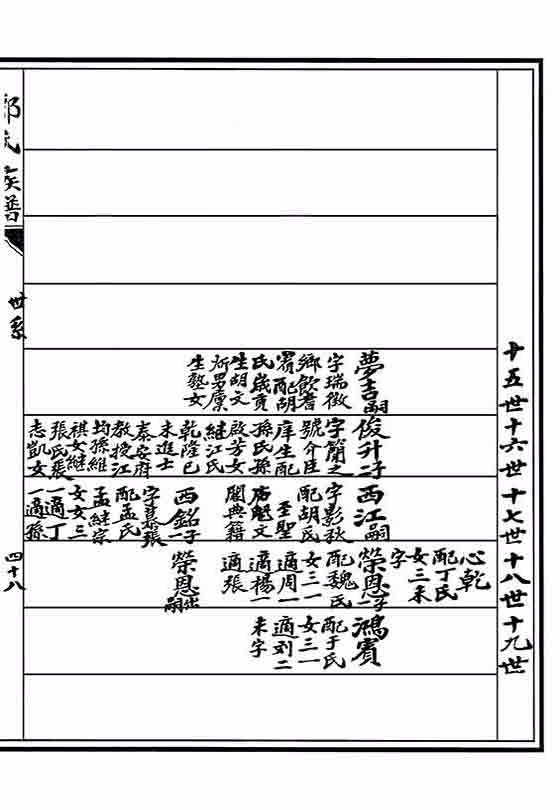 十五世
十六世
十七世
十八世
十九世
夢吉嗣
字瑞徵
鄉飲耆
賓配胡
氏歲貢
生胡文
炳男廩
生塾女
俊升二子
字簡之
號介臣
庠生配
孫氏孫
啟芳女
継江氏
乾隆己
未進士
泰安府
教授江
均孫維
祺女継
張氏張
志凱女
西江嗣
字影秋
配胡氏
至聖
廟魁文
閣典籍
西銘一子
字慕張
配孟氏
孟継宗
女女三
一適丁
一適孫
心乾
配丁氏
女三未
字
榮恩一子
配魏氏
女三一
適周一
適楊一
適張
榮恩出嗣
鴻賓
配于氏
女三一
適刘二
未字
氏族譜
世系
四十八